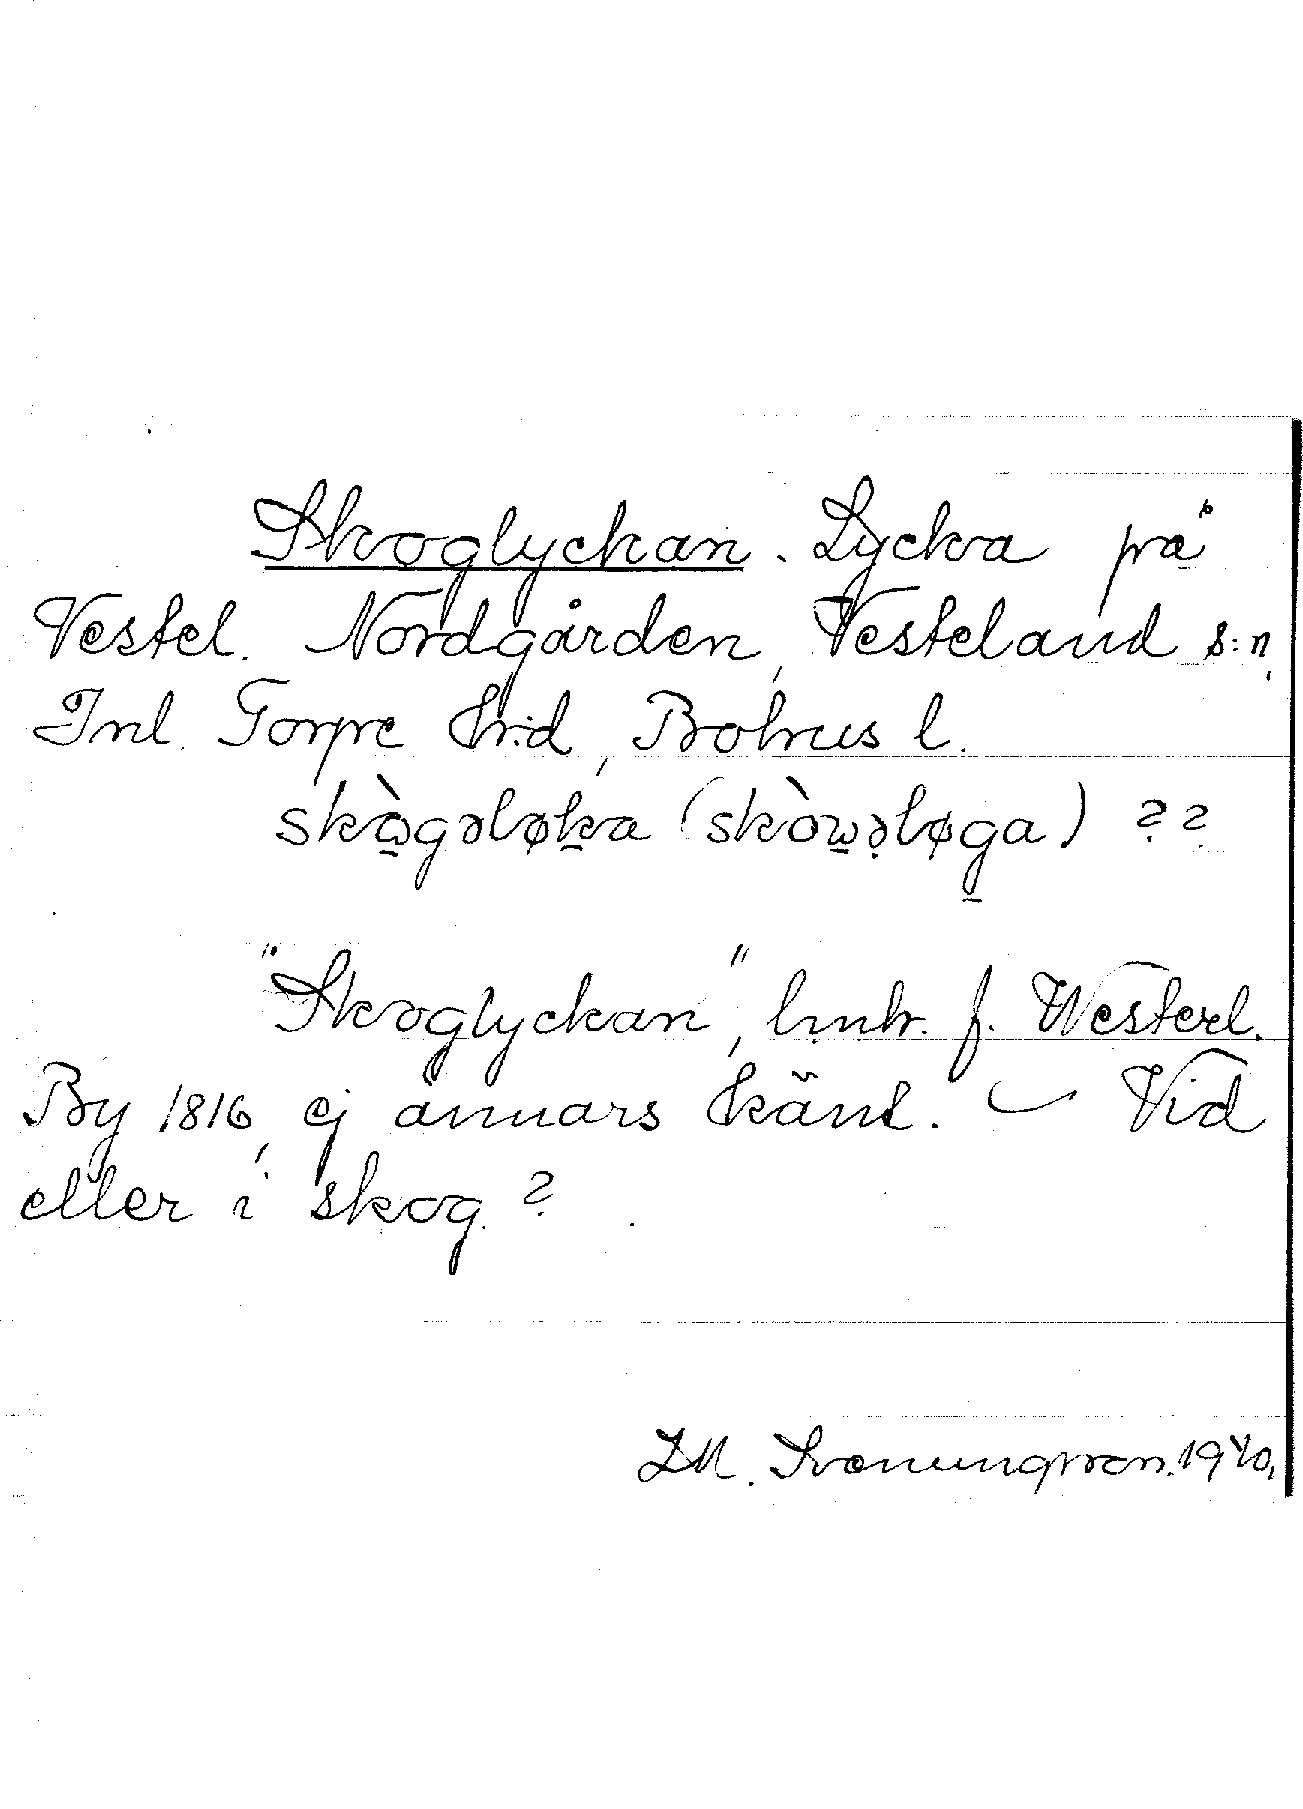 Skoglyckan. Lycka på
Vestel. Nordgården, Vesteland s:n,
Inl. Torpe hrd, Bohus l.
skògəløka (skòwəløga) ??
"Skoglyckan", hmb. f. Westerl.
By 1816, ej annars känt. – Vid
eller i skog?
J.M. Svenungsson. 1940.